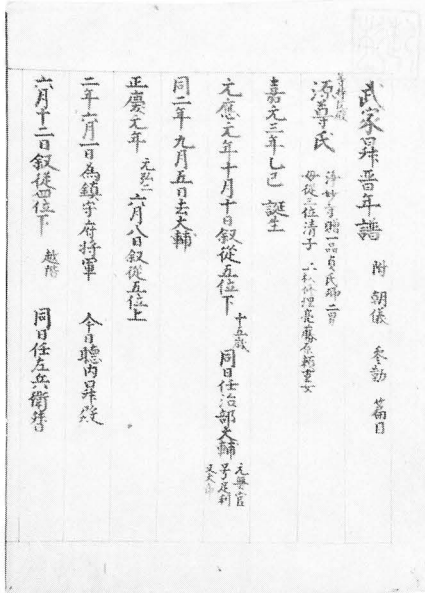 武家昇晋年譜 附 朝儀 参勤 篇目
等持院殿
源尊氏 浄妙寺贈一品貞氏卿二男
母従三位清子 藤原頼重女
嘉元三年乙巳 誕生
元應元年十月十日叙從五位下 十五歳 同日任治部大輔 元無官
号足利
又太郎
同二年九月五日去大輔
正慶元年 元弘二 六月八日叙從五位上
二年六月一日為鎮守府将軍 今日聴内昇殿
六月十二日叙從四位下 越階 同日任左兵衛督